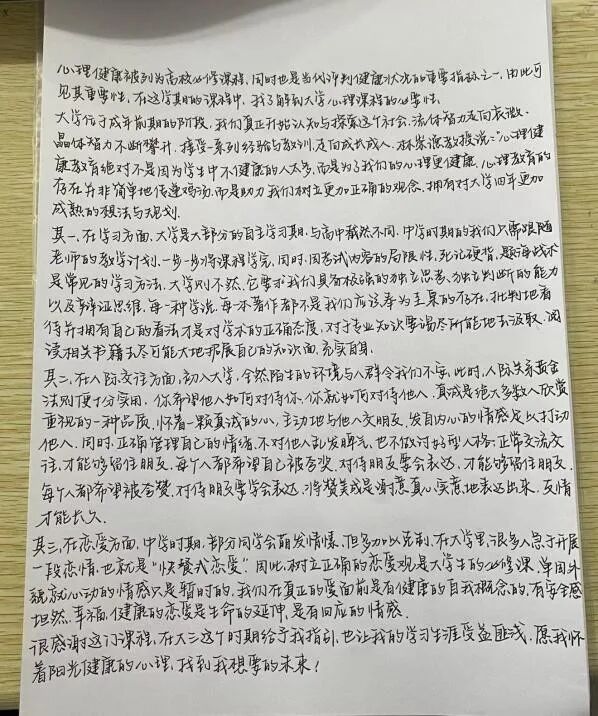 心理健康被列为高校必修课程,同时也是当代评判健康状况的重要指标之一,由此可
见其重要性,在这学期的课程中,我了解到大学心理课程的必要性.
大学位于成年前期的阶段,我们真正开始认知与探索这个社会.流体智力走向衰微,
晶体智力不断攀升,接受一系列经验与教训,走向成长成人.林崇德教授说:“心理健
康教育绝对不是因为学生中不健康的人太多,而是为了我们的心理更健康.心理教育的
存在并非简单地传递鸡汤,而是助力我们树立更加正确的观念,拥有对大学四年更加
成熟的想法与规划.
其一,在学习方面,大学是大部分的自主学习期,与高中截然不同,中学时期的我们只需跟随
老师的教学计划,一步一步将课程学完,同时,因考试内容的局限性,死记硬背,题海战术
是常见的学习方法,大学则不然,它要求我们具备极强的独立思考、独立判断的能力
以及辩证思维,每一种学说,每一本著作都不是我们应该奉为至臬的存在,批判地看
待并拥有自己的看法才是对学术的正确态度,对于专业知识要竭尽所能地去汲取,阅
读相关书籍去尽可能大地拓展自己的知识面,充实自身.
其二,在人际交往方面,初入大学,全然陌生的环境与人群令我们不安,此时,人际关系黄金
法则便十分实用,你希望他人如何对待你,你就如何对待他人.真诚是绝大多数人欣赏
重视的一种品质,怀着一颗真诚的心,主动地与他人交朋友,发自内心的情感足以打动
他人.同时,正确管理自己的情绪,不对他人乱发脾气,也不做讨好型人格,正常交流交
往,才能够留住朋友,每个人都希望自己被夸奖,对待朋友要会表达,才能够留住朋友.
每个人都希望被夸赞,对待朋友要学会表达,将赞美或是谢意真心实意地表达出来,友情
才能长久.
其三,在恋爱方面,中学时期,部分同学会萌发情愫,但多加以克制,在大学里,很多人急于开展
一段恋情,也就是“快餐式恋爱”.因此,树立正确的恋爱观是大学生的必修课,单因外
貌就心动的情感只是暂时的,我们在真正的爱面前是有健康的自我概念的,有安全感
地然,幸福,健康的恋爱是生命的延伸,是有回应的情感.
很感谢这门课程,在大三这个时期给予我指引,也让我的学习生涯受益匪浅,愿我怀
着阳光健康的心理,找到我想要的未来!